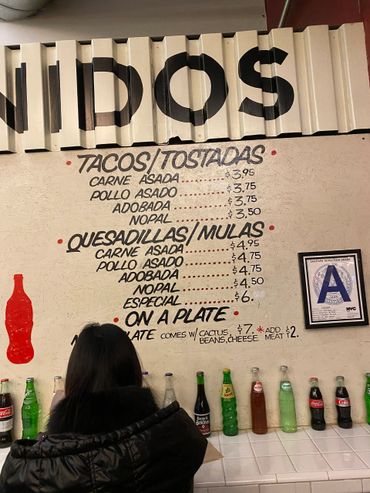 NIDOS
• TACOS/TOSTADAS •
CARNE ASADA ........ $3.95
POLLO ASADO ........ $3.75
ADOBADA ........ $3.75
NOPAL ........ $3.50
• QUESADILLAS/MULAS •
CARNE ASADA ........ $4.95
POLLO ASADO ........ $4.75
ADOBADA ........ $4.75
NOPAL ........ $4.50
ESPECIAL ........ $6.
• ON A PLATE •
LATE COMES W/ CACTUS, BEANS, CHEESE $7. * ADD MEAT $2.
A
NYC